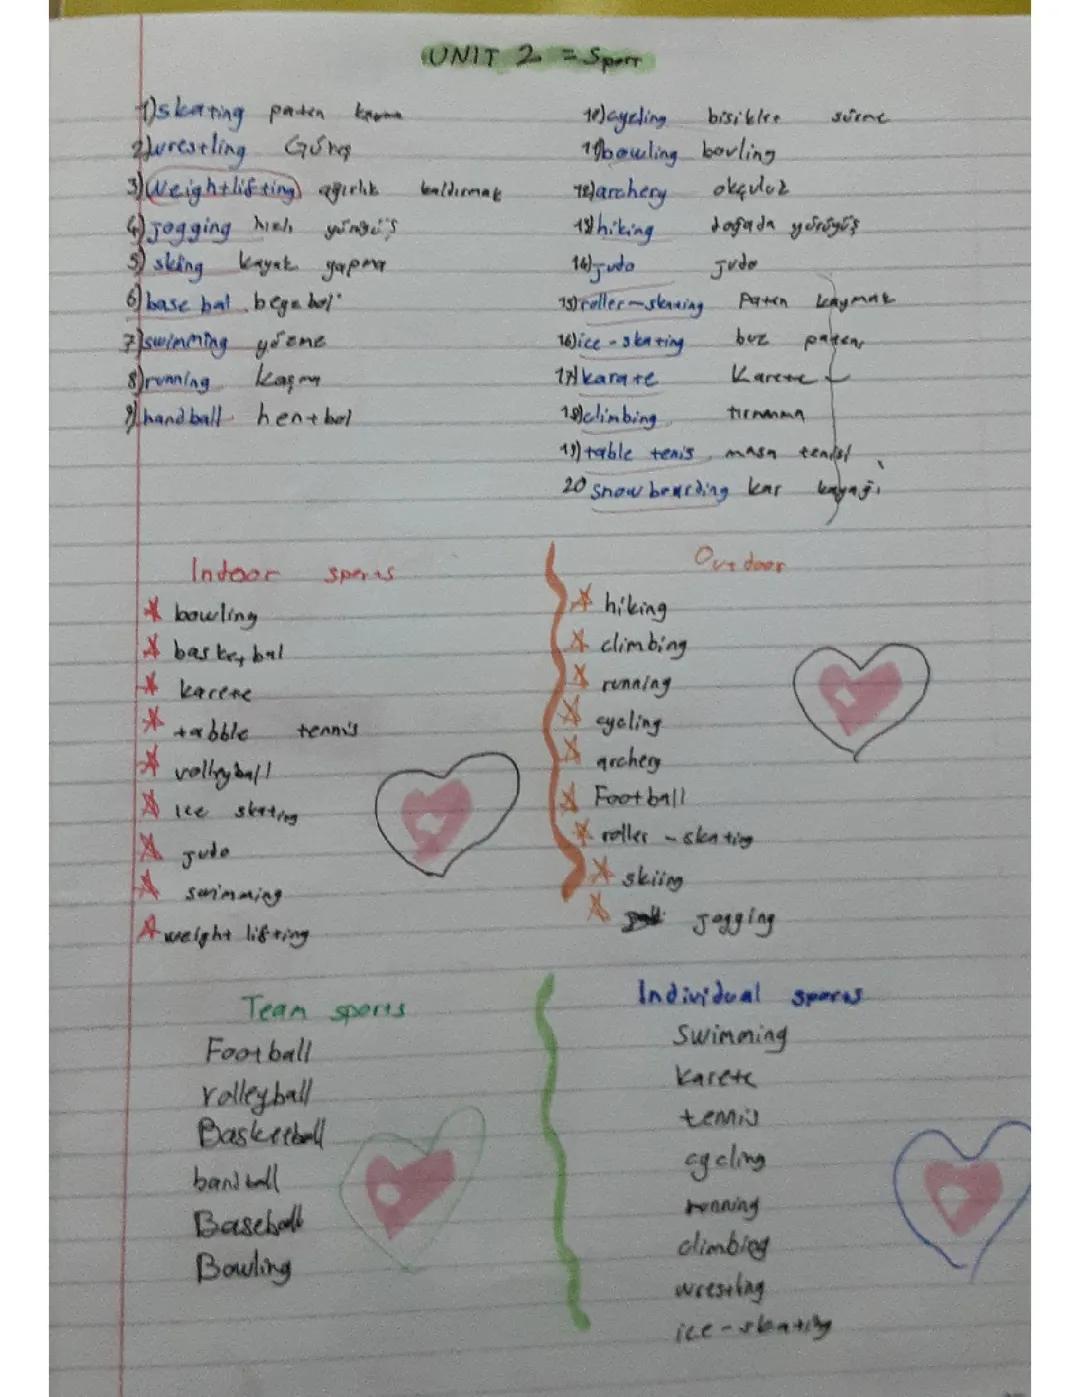 UNIT 2 = Sport
1) skating paten kayma
2) wrestling Güreş
3) Weightlifting ağırlık kaldırmak
4) jogging hızlı yürüyüş
5) skiing kayak yapma
6) base bal beyzbol
7) swimming yüzme
8) running koşma
9) handball hentbol
10) cycling bisiklet sürme
11) bowling bovling
12) archery okçuluk
13) hiking doğada yürüyüş
14) judo judo
15) roller-skating Paten kaymak
16) ice-skating buz pateni
17) karate Karete
18) climbing tırmanma
19) table tenis masa tenisi
20 snow bearding kar kayağı
Indoor sports
bowling
basketbal
karete
tabble tennis
volleyball
ice skating
judo
swimming
weight lifting
Outdoor
hiking
climbing
running
cycling
archery
Football
roller-skating
skiing
jogging
Team sports
Football
volleyball
Basketball
handball
Baseball
Bowling
Individual sports
Swimming
karete
tennis
cycling
running
climbing
wrestling
ice-skating